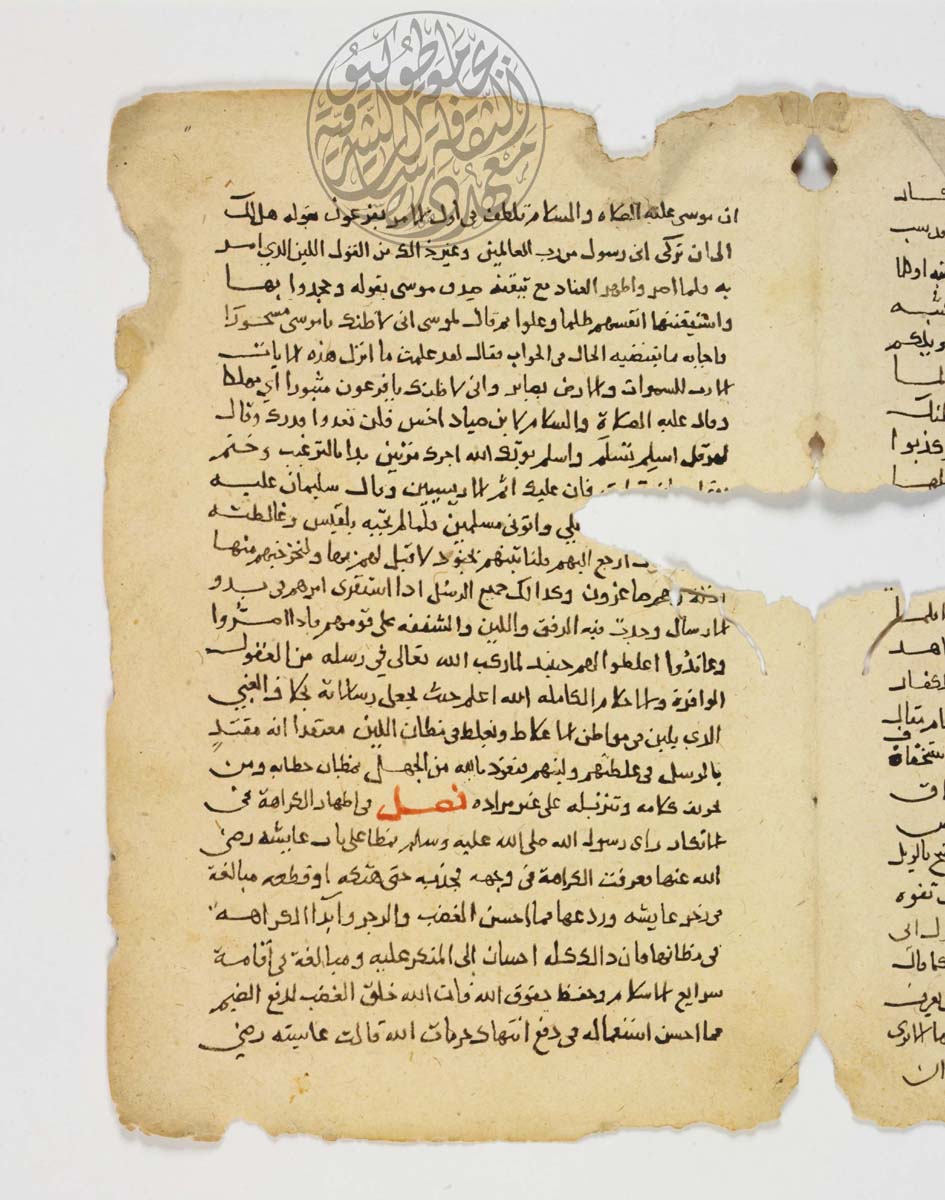 ان موسى عليه الصلاه والسلام تلطف فى أول الامر بفرعون بقوله هل لك
الى ان تزكى انى رسول من رب العالمين وغير ذالك من القول اللين الذي امر
به فلما اصر واظهر العناد مع تيقنه صدق موسى بقوله وجحدوا بها
واستيقنتها انفسهم ظلما وعلوا ثم قال لموسى انى لاظنك ياموسى مسحورا
فاجابه بما يقتضيه الحال فى الجواب فقال لقد علمت ما انزل هذه الايات
الارب السموات والارض بصاير وانى لاظنك يا فرعون مثبورا أي مهلكا
وقال عليه الصلاة والسلام لابن صياد اخس فلن تعدوا قدرك وقال
لهرقل اسلم تسلم واسلم يوتك الله اجرك مرتين بدا بالترغيب وختم
فان عليك اثم الاريسيين وقال سليمان عليه
واتونى مسلمين فلما لم تجبه بلقيس وغالطته
ارجع اليهم فلناتينهم بجنود لا قبل لهم بها ولنخرجنهم منها
اذلة وهم صاغرون وكذالك جميع الرسل اذا استقرى امرهم فى بدو
الارسال وجدت فيه الرفق واللين والشفقه على قومهم فاذا اصروا
وعاندوا اغلظوا لهم حينيد لما ركب الله تعالى في رسله من العقول
الوافرة والاحلام الكامله الله اعلم حيث يجعل رسالاته بخلاف الغبي
الذي يلين فى مواطن الاغلاظ ويغلظ فى مظان اللين معتقدا انه مقتد
بالرسل فى غلظتهم ولينهم فنعوذ بالله من الجهل بمظان خطابه ومن
تحريف كلامه وتنزيله على غير مراده فصل فى اظهار الكراهة فى
الانكار راى رسول الله صلى الله عليه وسلم نمطا على باب عايشه رضى
الله عنها فعرفت الكراهة فى وجهه فجذبه حتى هتكه او قطعه مبالغة
فى زجر عايشه وردعها فما احسن الغضب والزجر وابدا الكراهه
فى مظانها فان ذالك كله احسان إلى المنكر عليه ومبالغة فى اقامة
شرايع الاسلام وحفظ حقوق الله فان الله خلق الغضب لدفع الضيم
فما احسن استعماله فى دفع انتهاك حرمات الله قالت عايشه رضى